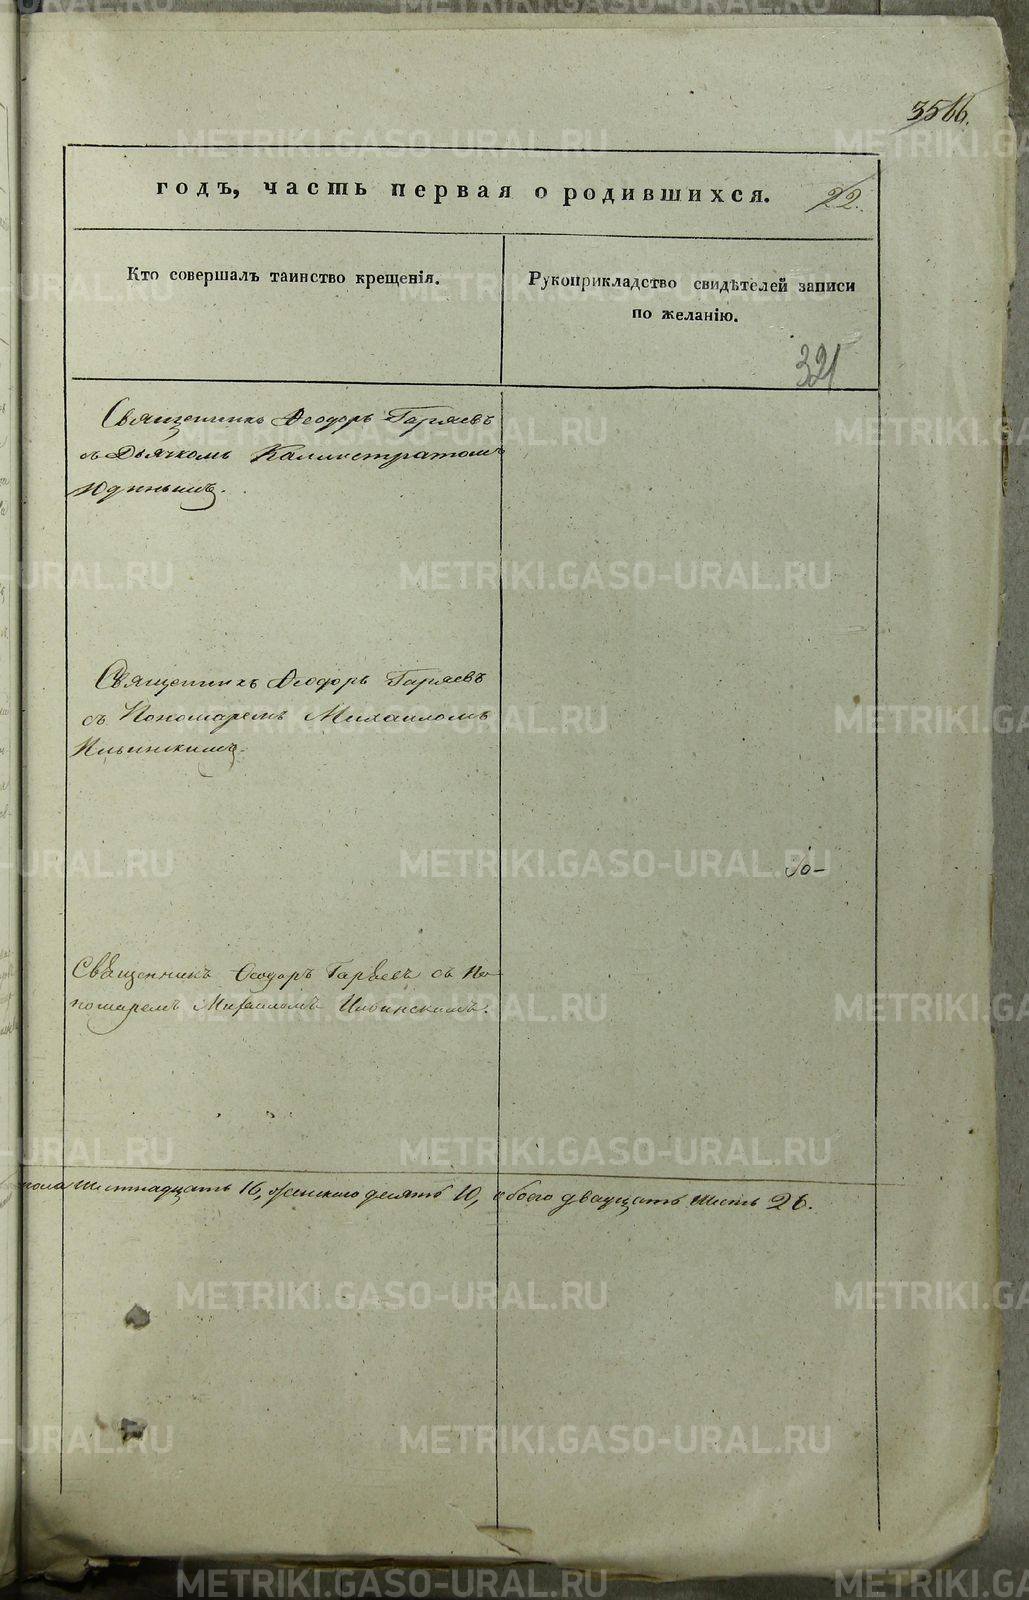 3566.
годъ, часть первая о родившихся.
22.
Кто совершалъ таинство крещенія.
Рукоприкладство свидѣтелей записи
по желанію.
321
Священникъ Ѳеодоръ Гаряевъ
съ Дьячкомъ Каллистратомъ
Юдинымъ.
Священникъ Ѳеодоръ Гаряевъ
съ Пономаремъ Михаиломъ
Ильинскимъ.
Священникъ Ѳеодоръ Гаряевъ съ По-
номаремъ Михаиломъ Ильинскимъ.
пола шестнадцать 16, женскаго десять 10, обоего двадцать шесть 26.
METRIKI.GASO-URAL.RU